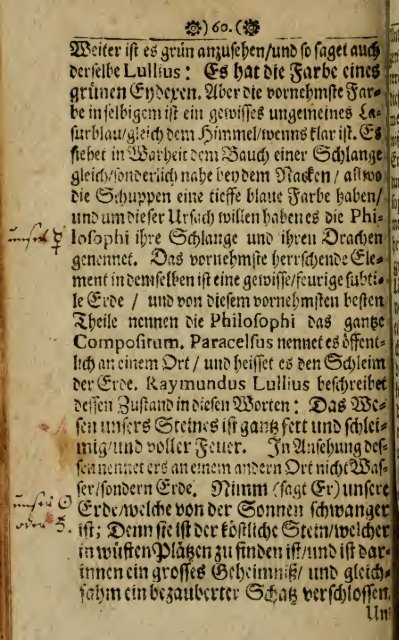 60.
Weiter ist es grün anzusehen/und so saget auch
derselbe Lullius: Es hat die Farbe eines
grünen Eyderen. Aber die vornehmste Far-
be in selbigem ist ein gewisses ungemeines La-
surblau/gleich dem Himmel/wenns klar ist. Es
siehet in Warheit dem Bauch einer Schlange
gleich/sonderlich nahe bey dem Nacken/ allwo
die Schuppen eine tieffe blaue Farbe haben/
und um dieser Ursach willen haben es die Phi-
losophi ihre Schlange und ihren Drachen
genennet. Das vornehmste herrschende Ele-
ment in demselben ist eine gewisse/feurige subti-
le Erde / und von diesem vornehmsten besten
Theile nennen die Philosophi das gantze
Compositum. Paracelsus nennet es öffent-
lich an einem Ort/ und heisset es den Schleim
der Erde. Raymundus Lullius beschreibet
dessen Zustand in diesen Worten: Das We-
sen unsers Steines ist gantz fett und schlei-
mig/und voller Feuer. In Ansehung des-
sen nennet ers an einem andern Ort nicht Was-
ser/sondern Erde. Nimm (sagt Er) unsere
Erde/welche von der Sonnen schwanger
ist; Denn sie ist der köstliche Stein/welcher
in wüsten Plätzen zu finden ist/und ist dar-
innen ein grosses Geheimniß/ und gleich-
sahm ein bezauberter Schatz verschlossen.
Un-
unser ☿
unser ☉
oder